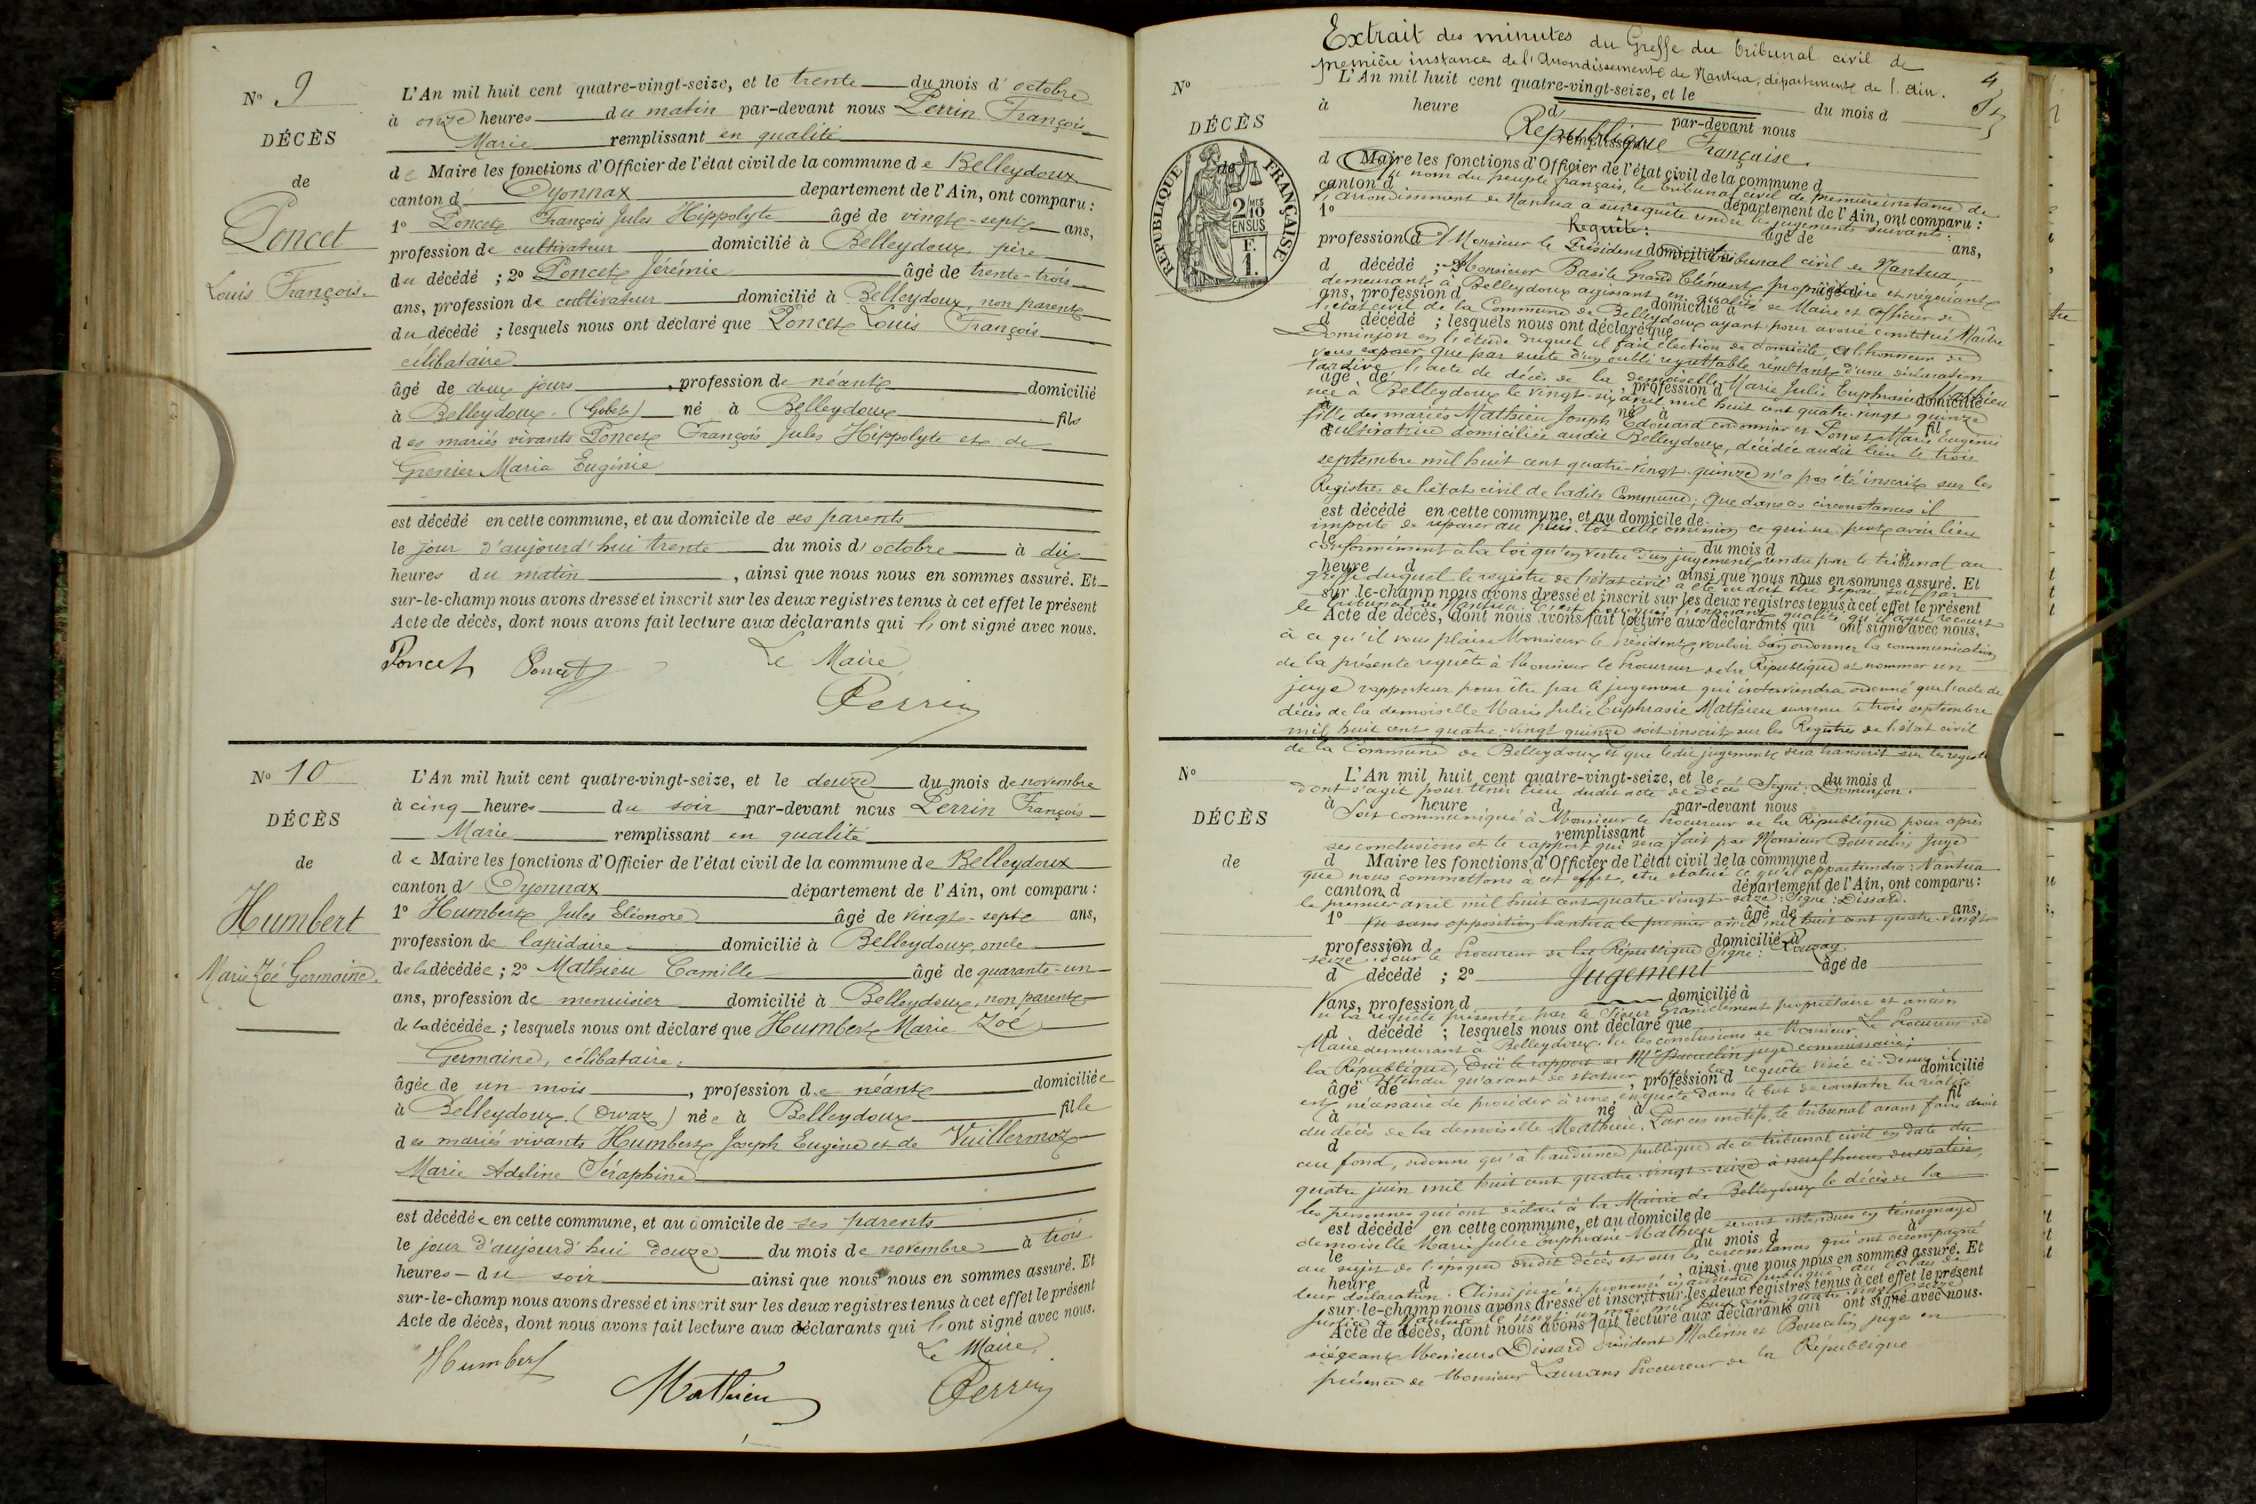 N° 9
DÉCÈS
de
Poncet
Louis François
L'An mil huit cent quatre-vingt-seize, et le trente du mois d' octobre
à onze heures du matin par-devant nous Perrin François
Marie remplissant en qualité
de Maire les fonctions d'Officier de l'état civil de la commune de Belleydoux
canton d' Oyonnax département de l'Ain, ont comparu :
1° Poncet François Jules Hippolyte âgé de vingt-sept ans,
profession de cultivateur domicilié à Belleydoux, père
du décédé ; 2° Poncet Jérémie âgé de trente-trois
ans, profession de cultivateur domicilié à Belleydoux, non parent
du décédé ; lesquels nous ont déclaré que Poncet Louis François
célibataire
âgé de deux jours, profession de néant domicilié
à Belleydoux. (Gobet) né à Belleydoux fils
des mariés vivants Poncet François Jules Hippolyte et de
Grenier Maria Eugénie
est décédé en cette commune, et au domicile de ses parents
le jour d'aujourd'hui trente du mois d'octobre à dix
heures du matin, ainsi que nous nous en sommes assuré. Et
sur-le-champ nous avons dressé et inscrit sur les deux registres tenus à cet effet le présent
Acte de décès, dont nous avons fait lecture aux déclarants qui l'ont signé avec nous.
Poncet Poncet Le Maire
Perrin
N° 10
DÉCÈS
de
Humbert
Marie Zoé Germaine
L'An mil huit cent quatre-vingt-seize, et le douze du mois de novembre
à cinq heures du soir par-devant nous Perrin François
Marie remplissant en qualité
de Maire les fonctions d'Officier de l'état civil de la commune de Belleydoux
canton d' Oyonnax département de l'Ain, ont comparu :
1° Humbert Jules Eléonore âgé de vingt-sept ans,
profession de lapidaire domicilié à Belleydoux, oncle
de la décédée ; 2° Mathieu Camille âgé de quarante-un
ans, profession de menuisier domicilié à Belleydoux, non parent
de la décédée ; lesquels nous ont déclaré que Humbert Marie Zoé
Germaine, célibataire
âgée de un mois, profession de néant domiciliée
à Belleydoux. (Orvaz) née à Belleydoux fille
des mariés vivants Humbert Joseph Eugène et de Vuillermoz
Marie Adeline Séraphine
est décédée en cette commune, et au domicile de ses parents
le jour d'aujourd'hui douze du mois de novembre à trois
heures du soir ainsi que nous nous en sommes assuré. Et
sur-le-champ nous avons dressé et inscrit sur les deux registres tenus à cet effet le présent
Acte de décès, dont nous avons fait lecture aux déclarants qui l'ont signé avec nous.
Le Maire
Humbert Mathieu Perrin
Extrait des minutes du Greffe du tribunal civil de
première instance de l'Arrondissement de Nantua, département de l'Ain.
N°
DÉCÈS
de
RÉPUBLIQUE FRANÇAISE
2/10 EN SUS
F. 1.
L'An mil huit cent quatre-vingt-seize, et le du mois d
à heure d par-devant nous
remplissant
République Française.
d Maire les fonctions d'Officier de l'état civil de la commune d
Au nom du peuple français, le tribunal civil de première instance de
canton d département de l'Ain, ont comparu :
l'arrondissement de Nantua a sur requête rendu les jugements suivants :
1° âgé de ans,
Requête :
profession d domicilié à
A Monsieur le Président du Tribunal civil de Nantua,
d décédé ; 2° âgé de
Monsieur Basile Grand Clément, propriétaire et négociant
demeurant à Belleydoux agissant en qualité de Maire et officier de
ans, profession d domicilié à
l'état civil de la Commune de Belleydoux ayant pour avoué constitué Maître
d décédé ; lesquels nous ont déclaré que
Dominjon en l'étude duquel il fait élection de domicile, a l'honneur de
vous exposer que par suite d'un oubli regrettable résultant d'une déclaration
tardive, l'acte de décès de la demoiselle Marie Julie Euphrasie Mathieu
âgé de , profession d domicilié
née à Belleydoux le vingt-six avril mil huit cent quatre-vingt quinze
à né à fil
fille des mariés Mathieu Joseph Edouard et Poncet Marie Eugénie
d
cultivatrice domiciliée audit Belleydoux, décédée audit lieu le trois
septembre mil huit cent quatre-vingt-quinze n'a pas été inscrit sur les
Registres de l'état civil de ladite Commune ; Que dans ces circonstances il
est décédé en cette commune, et au domicile de
importe de réparer au plus tôt cette omission ce qui ne peut avoir lieu
le du mois d à
conformément à la loi qu'en vertu d'un jugement rendu par le tribunal au
heure d , ainsi que nous nous en sommes assuré. Et
greffe duquel le registre de l'état civil a été ou doit être déposé, soit par
sur-le-champ nous avons dressé et inscrit sur les deux registres tenus à cet effet le présent
le tribunal de Nantua. C'est pourquoi l'exposant qualité qu'il agit recourt
Acte de décès, dont nous avons fait lecture aux déclarants qui ont signé avec nous.
à ce qu'il vous plaise Monsieur le Président vouloir bien ordonner la communication
de la présente requête à Monsieur le Procureur de la République et nommer un
juge rapporteur pour être par le jugement qui interviendra ordonné que l'acte de
décès de la demoiselle Marie Julie Euphrasie Mathieu survenu le trois septembre
mil huit cent quatre-vingt quinze soit inscrit sur les Registres de l'état civil
de la Commune de Belleydoux et que ledit jugement sera transcrit sur les registres
N°
DÉCÈS
de
L'An mil huit cent quatre-vingt-seize, et le du mois d
dont s'agit pour tenir lieu dudit acte de décès Signé : Dominjon.
à heure d par-devant nous
Soit communiqué à Monsieur le Procureur de la République pour après
remplissant
ses conclusions et le rapport qui sera fait par Monsieur Bourcelin, Juge
d Maire les fonctions d'Officier de l'état civil de la commune d
que nous commettons à cet effet, être statué ce qu'il appartiendra : Nantua
canton d département de l'Ain, ont comparu :
le premier avril mil huit cent quatre-vingt-seize. Signé : Dissard.
1° âgé de ans,
Vu sans opposition Nantua le premier avril mil huit cent quatre-vingt
profession d domicilié à
seize. Pour le Procureur de la République Signé :
d décédé ; 2° âgé de
Jugement
ans, profession d domicilié à
Vu la requête présentée par le Sieur Grandclément propriétaire et ancien
d décédé ; lesquels nous ont déclaré que
Maire demeurant à Belleydoux. Vu les conclusions de Monsieur Le Procureur de
la République, Ouï le rapport de Mr Bourcelin juge commissaire ;
Attendu qu'avant de statuer sur la requête visée ci-dessus il
âgé de , profession d domicilié
est nécessaire de procéder à une enquête dans le but de constater la réalité
à né à fil
du décès de la demoiselle Mathieu, Par ces motifs, le tribunal avant faire droit
d
au fond, ordonne qu'à l'audience publique de ce tribunal civil en date du
quatre juin mil huit cent quatre-vingt-seize à neuf heures du matin,
les personnes qui ont déclaré à la Mairie de Belleydoux le décès de la
est décédé en cette commune, et au domicile de
demoiselle Marie Julie Euphrasie Mathieu seront entendues en témoignage
le du mois d à
au sujet de l'époque dudit décès et sur les circonstances qui ont accompagné
heure d , ainsi que nous nous en sommes assuré. Et
leur déclaration. Ainsi jugé et prononcé en audience publique au Palais de
sur-le-champ nous avons dressé et inscrit sur les deux registres tenus à cet effet le présent
Justice à Nantua le mai mil huit cent quatre-vingt-seize
Acte de décès, dont nous avons fait lecture aux déclarants qui ont signé avec nous.
siégeant Messieurs Dissard président Malerin et Bourcelin juges en
présence de Monsieur Laurans Procureur de la République